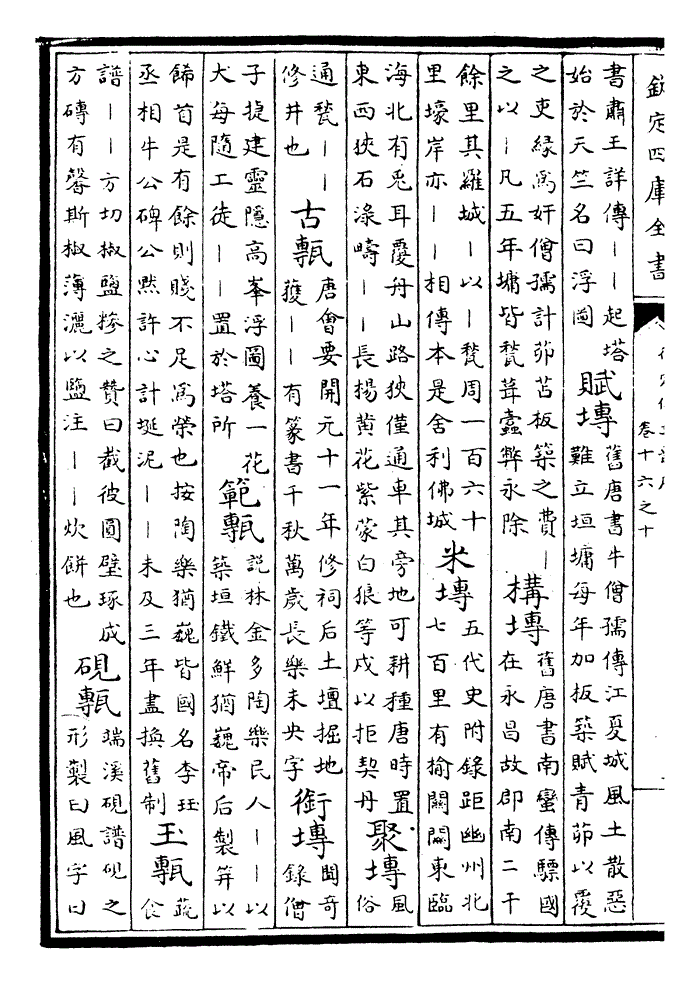 欽定四庫全書
卷十六之十
書肅王詳傳——起塔
始於天竺名曰浮圖
賦塼
舊唐書牛僧孺傳江夏城風土散惡
難立垣墉每年加板築賦青茆以覆
之吏緣為奸僧孺計茆苫板築之費—
之以—凡五年墉皆甃葺蠧弊永除
構塼
舊唐書南蠻傳驃國
在永昌故郡南二千
餘里其羅城—以—甃周一百六十
里壕岸亦——相傳本是舍利佛城
米塼
五代史附錄距幽州北
七百里有榆關關東臨
海北有兎耳覆舟山路狹僅通車其旁地可耕種唐時置
東西狹石淥疇——長揚黃花紫蒙白狼等戍以拒契丹
聚塼
風
俗
通甃——
修井也
古甎
唐會要開元十一年修祠后土壇掘地
獲——有篆書千秋萬歲長樂未央字
銜塼
聞奇
錄僧
子捷建靈隱高峯浮圖養一花
犬每隨工徒——置於塔所
範甎
說林金多陶樂民人——以
築垣鐵鮮猶巍帝后製笄以
餙首是有餘則賤不足為榮也按陶樂猶巍皆國名李珏
丞相牛公碑公黙許心計埏泥——未及三年盡換舊制
玉甎
蔬
食
譜——方切椒鹽糝之贊曰截彼圓璧琢成
方磚有馨斯椒薄灑以鹽注——炊餅也
硯甎
端溪硯譜硯之
形製曰風字曰